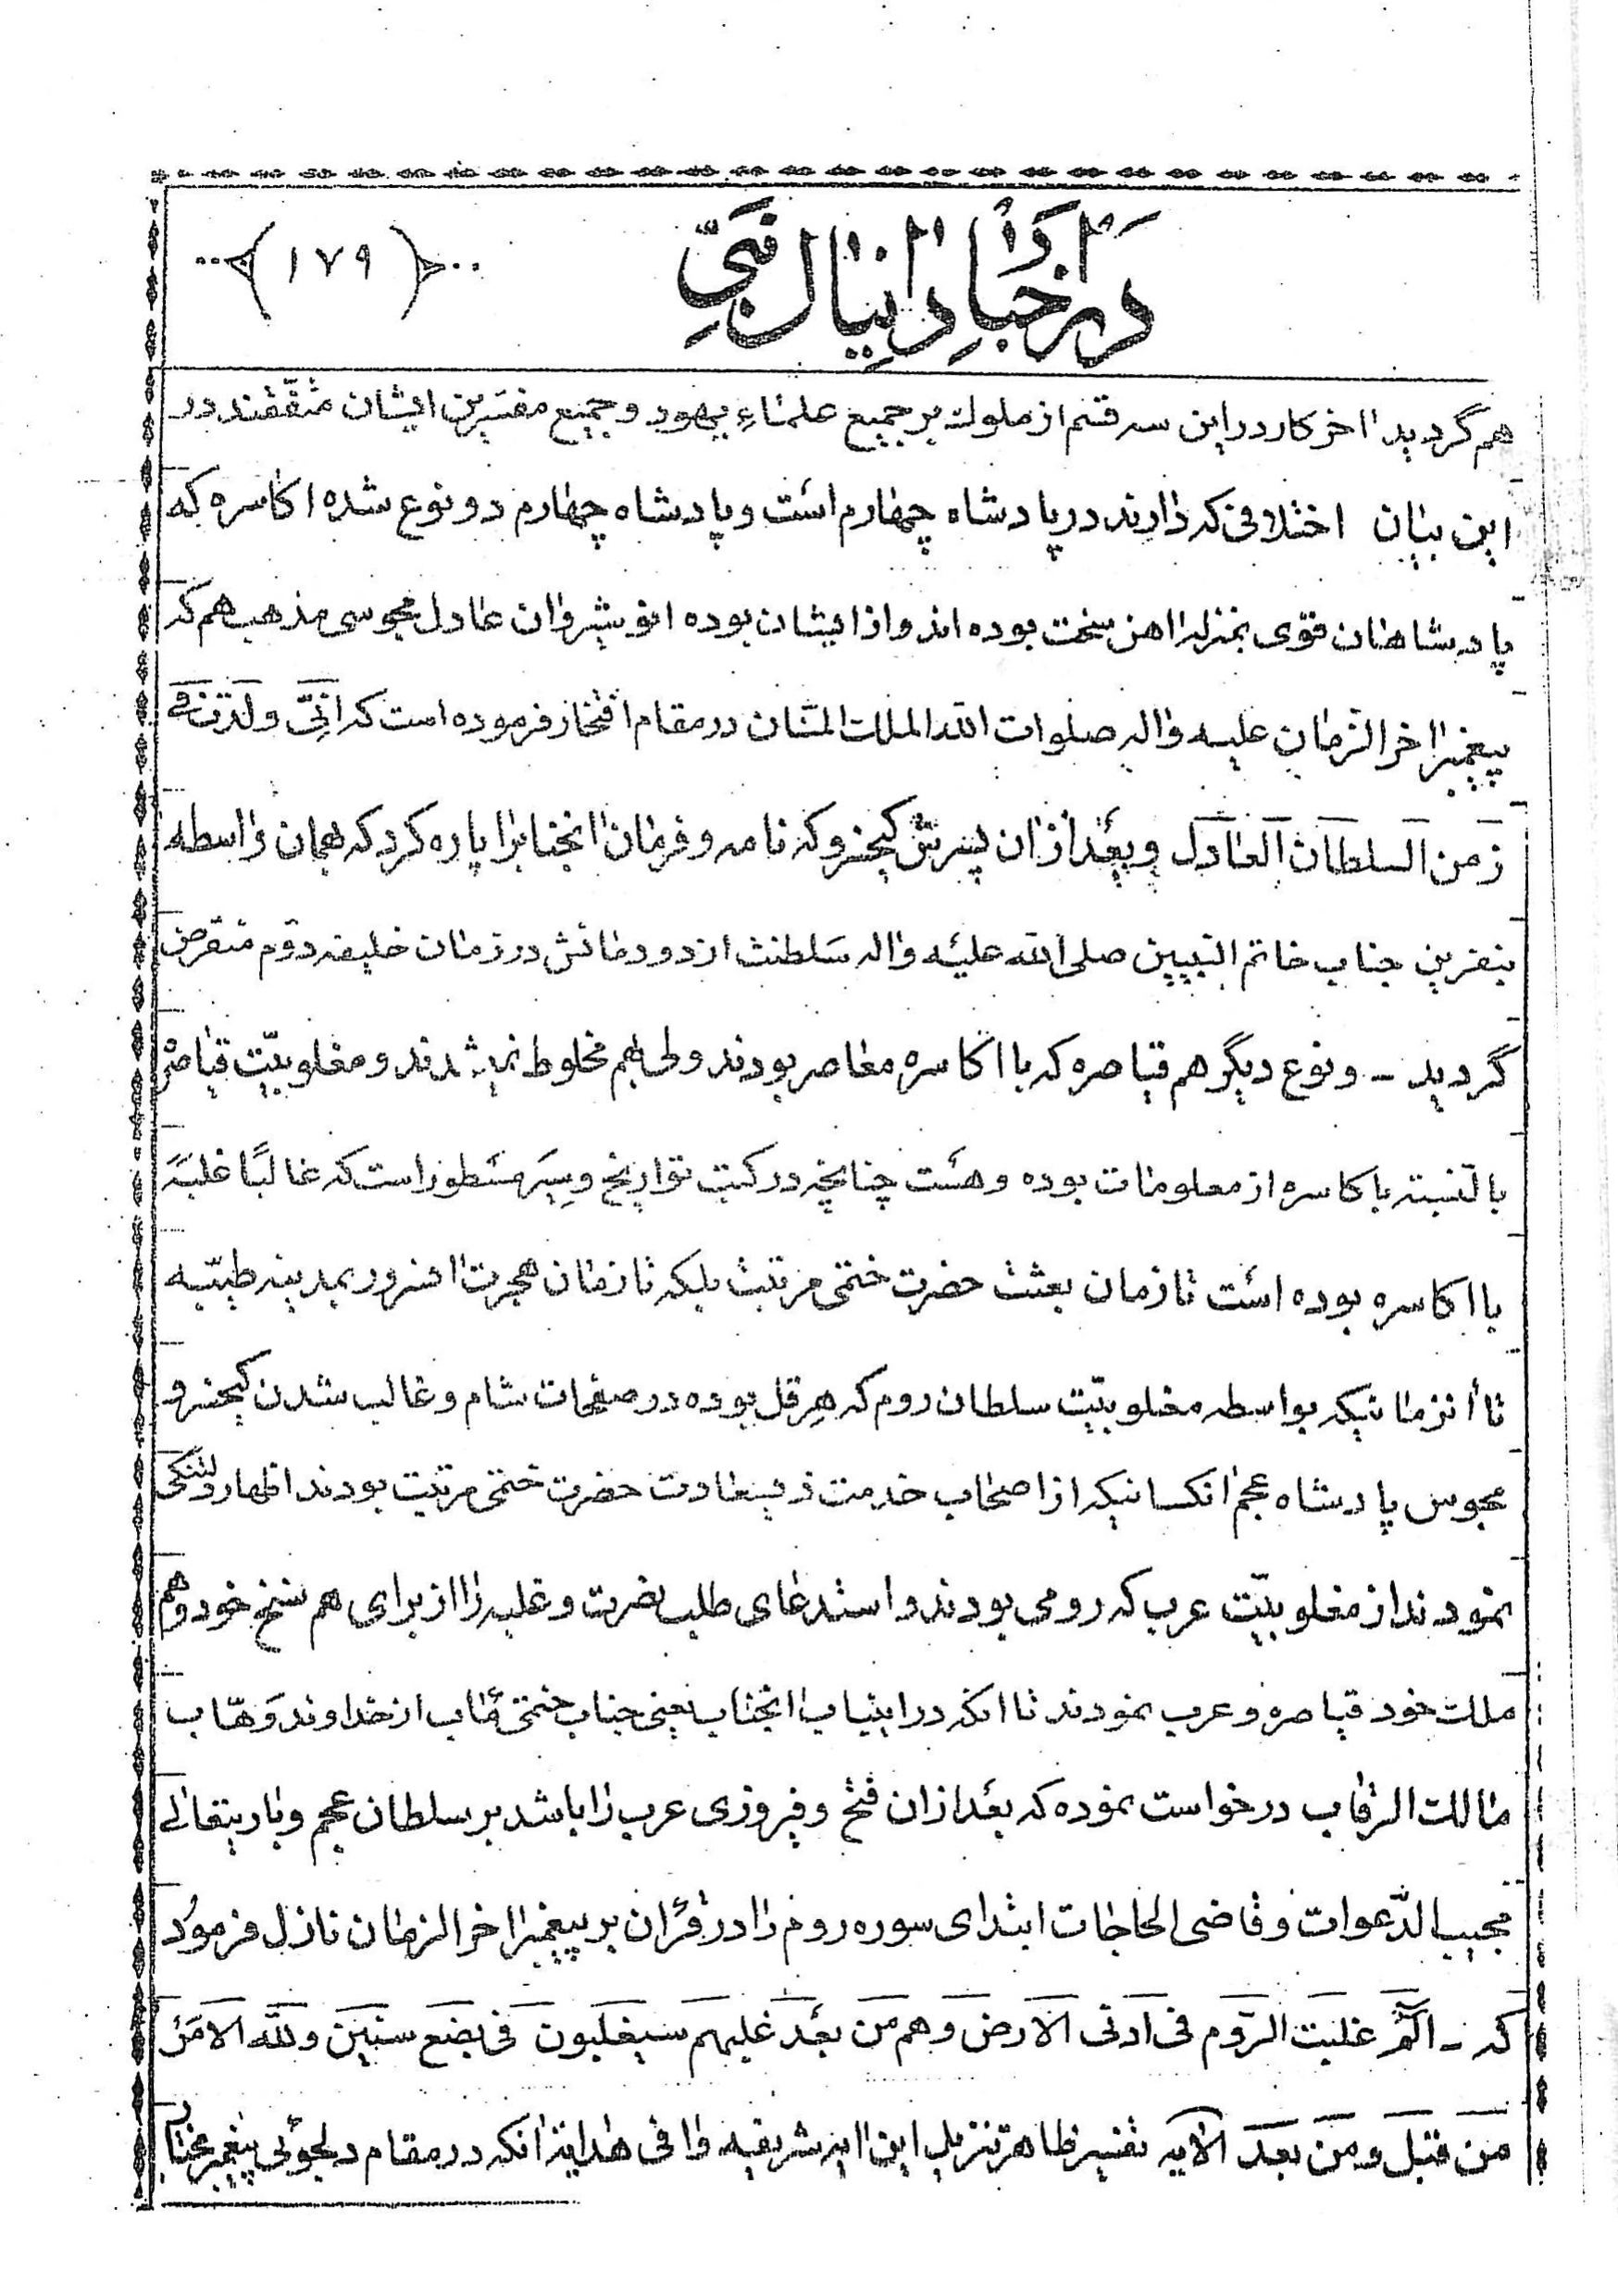 در اخبار دانیال نبی
(۱۷۹)
هم گردید اخر کار در این سه قسم از ملوک بر جمیع علماء یهود و جمیع مفسرین ایشان متفقند در
این بیان اختلافی که دارند در پادشاه چهارم است و پادشاه چهارم دو نوع شده اکاسره که
پادشاهان قوی بمنزله اهن سخت بوده اند و از ایشان بوده انوشیروان عادل مجوسی مذهب هم که
پیغمبر اخر الزمان علیه واله صلوات الله الملک المنان در مقام افتخار فرموده است که انی ولدت فی
زمن السلطان العادل و بعد از ان پسرش کیخسرو که نامه و فرمان انجنابرا پاره کرد که بهمان واسطه
بنفرین جناب خاتم النبیین صلی الله علیه واله سلطنت از دودمانش در زمان خلیفه دوم منقرض
گردید - و نوع دیگر هم قیاصره که با اکاسره معاصر بودند ولی بهم مخلوط نمیشدند و مغلوبیت قیاصره
بالنسبه باکاسره از معلومات بوده و هست چنانچه در کتب تواریخ و سیر مسطور است که غالبًا غلبه
با اکاسره بوده است تا زمان بعثت حضرت ختمی مرتبت بلکه تا زمان هجرت انسرور بمدینه طیبه
تا انزمانیکه بواسطه مغلوبیت سلطان روم که هرقل بوده در صفحات شام و غالب شدن کیخسرو
مجوس پادشاه عجم انکسانیکه از اصحاب خدمت ذیسعادت حضرت ختمی مرتبت بودند اظهار دلتنگی
نمودند از مغلوبیت عرب که رومی بودند و استدعای طلب نصرت و غلبه را از برای هم سنخ خود و هم
ملک خود قیاصره و عرب نمودند تا انکه در اینباب انجناب یعنی جناب ختمی ماب از خداوند وهاب
مالک الرقاب درخواست نموده که بعد از ان فتح و فیروزی عرب را باشد بر سلطان عجم و باریتعالی
مجیب الدعوات و قاضی الحاجات ابتدای سوره روم را در قرآن بر پیغمبر اخر الزمان نازل فرمود
که - الم غلبت الروم فی ادنی الارض و هم من بعد غلبهم سیغلبون فی بضع سنین ولله الامر
من قبل و من بعد الایه تفسیر ظاهر تنزیل این ایه شریفه وافی هدایة انکه در مقام دلجوئی پیغمبر مختار